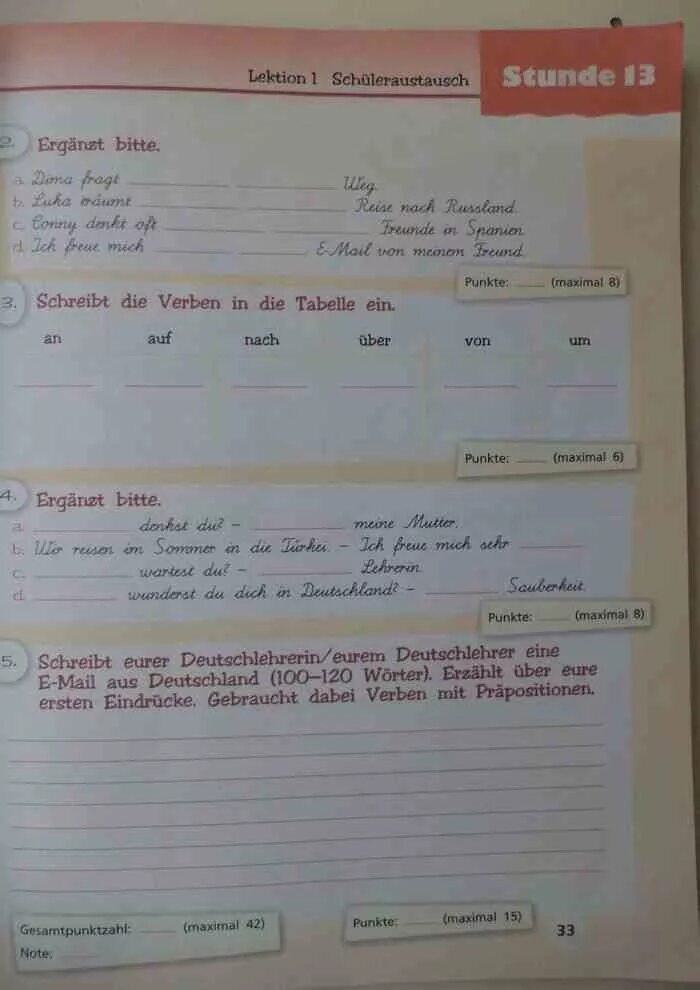 Lektion 1 Schüleraustausch Stunde 13
2. Ergänzt bitte.
a. Dima fragt ______ ______ Weg.
b. Luka träumt ______ ______ Reise nach Russland.
c. Conny denkt oft ______ ______ Freunde in Spanien.
d. Ich freue mich ______ ______ E-Mail von meinem Freund.
Punkte: ____ (maximal 8)
3. Schreibt die Verben in die Tabelle ein.
an auf nach über von um
Punkte: ____ (maximal 6)
4. Ergänzt bitte.
a. ______ denkst du? – ______ meine Mutter.
b. Wir reisen im Sommer in die Türkei. – Ich freue mich sehr ______
c. ______ wartest du? – ______ Lehrerin.
d. ______ wunderst du dich in Deutschland? – ______ Sauberkeit.
Punkte: ____ (maximal 8)
5. Schreibt eurer Deutschlehrerin/eurem Deutschlehrer eine
E-Mail aus Deutschland (100–120 Wörter). Erzählt über eure
ersten Eindrücke. Gebraucht dabei Verben mit Präpositionen.
Gesamtpunktzahl: ____ (maximal 42)
Note: ____
Punkte: ____ (maximal 15)
33